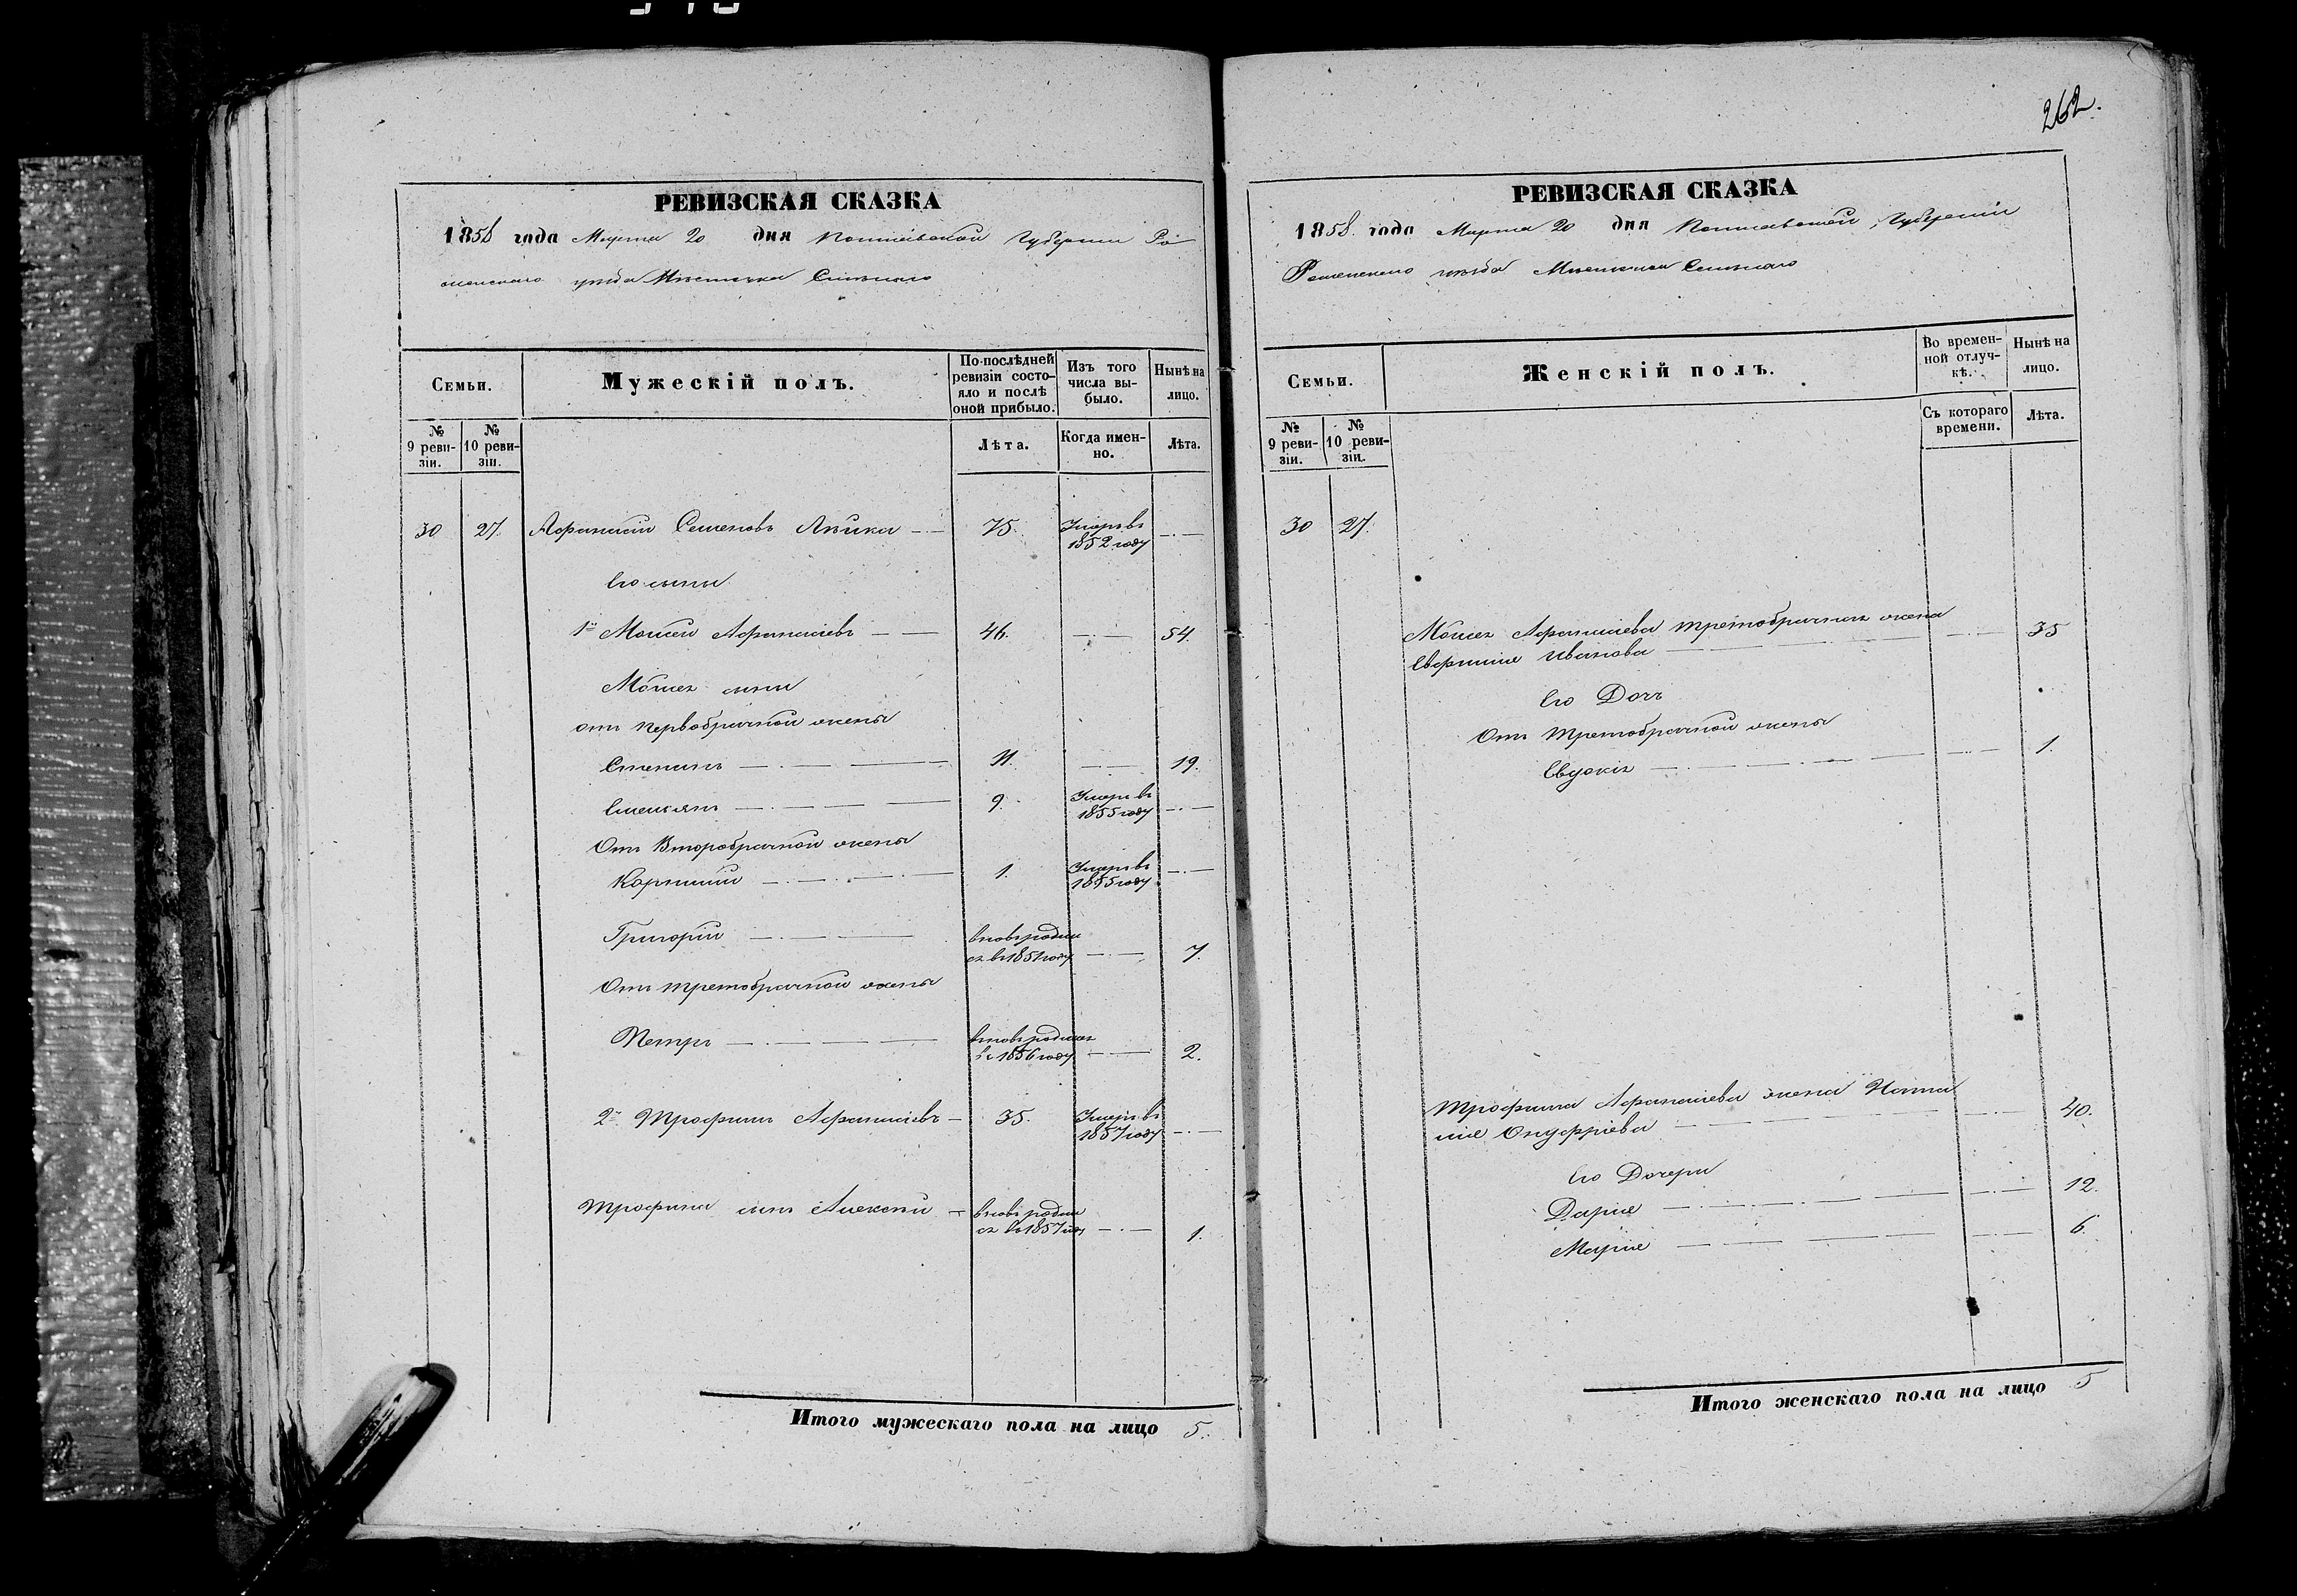 262.
РЕВИЗСКАЯ СКАЗКА
1858 года Марта 20 дня Полтавской Губернии Ро
менскаго уезда Местечка Смелаго
Семьи.
Мужескій полъ.
По послѣдней ревизіи состояло и послѣ оной прибыло.
Изъ того числа выбыло.
Нынѣ на лицо.
№ 9 ревизіи.
№ 10 ревизіи.
Лѣта.
Когда именно.
Лѣта.
30 27. Афанасій Семеновъ 75. Умеръ въ 1852 году
Его сыны
1й Мойсей Афанасіевъ 46. 54.
Мойсея сыны
отъ первобрачной жены
Степанъ 11. 19.
Емельянъ 9. Умеръ въ 1855 году
Отъ Второбрачной жены
Корнилій 1. Умеръ въ 1855 году
Григорій вновь родился въ 1851 году 7.
Отъ третобрачной жены
Петръ вновь родился въ 1856 году 2.
2й Трофимъ Афанасіевъ 35. Умеръ въ 1857 году
Трофима сынъ Алексей вновь родился въ 1857 году 1.
Итого мужескаго пола на лицо 5.
РЕВИЗСКАЯ СКАЗКА
1858. года Марта 20 дня Полтавской Губерніи
Роменскаго уезда Местечка Смелаго
Семьи.
Женскій полъ.
Во временной отлучкѣ.
Нынѣ на лицо.
№ 9 ревизіи.
№ 10 ревизіи.
Съ котораго времени.
Лѣта.
30 27.
Мойсея Афанасіева третобрачная жена
Иванова 35
Его Дочь
Отъ Третобрачной жены
Евдокія 1.
Трофима Афанасіева жена
Онуфріева 40.
Его Дочери
Дарія 12.
Марія 6.
Итого женскаго пола на лицо 5